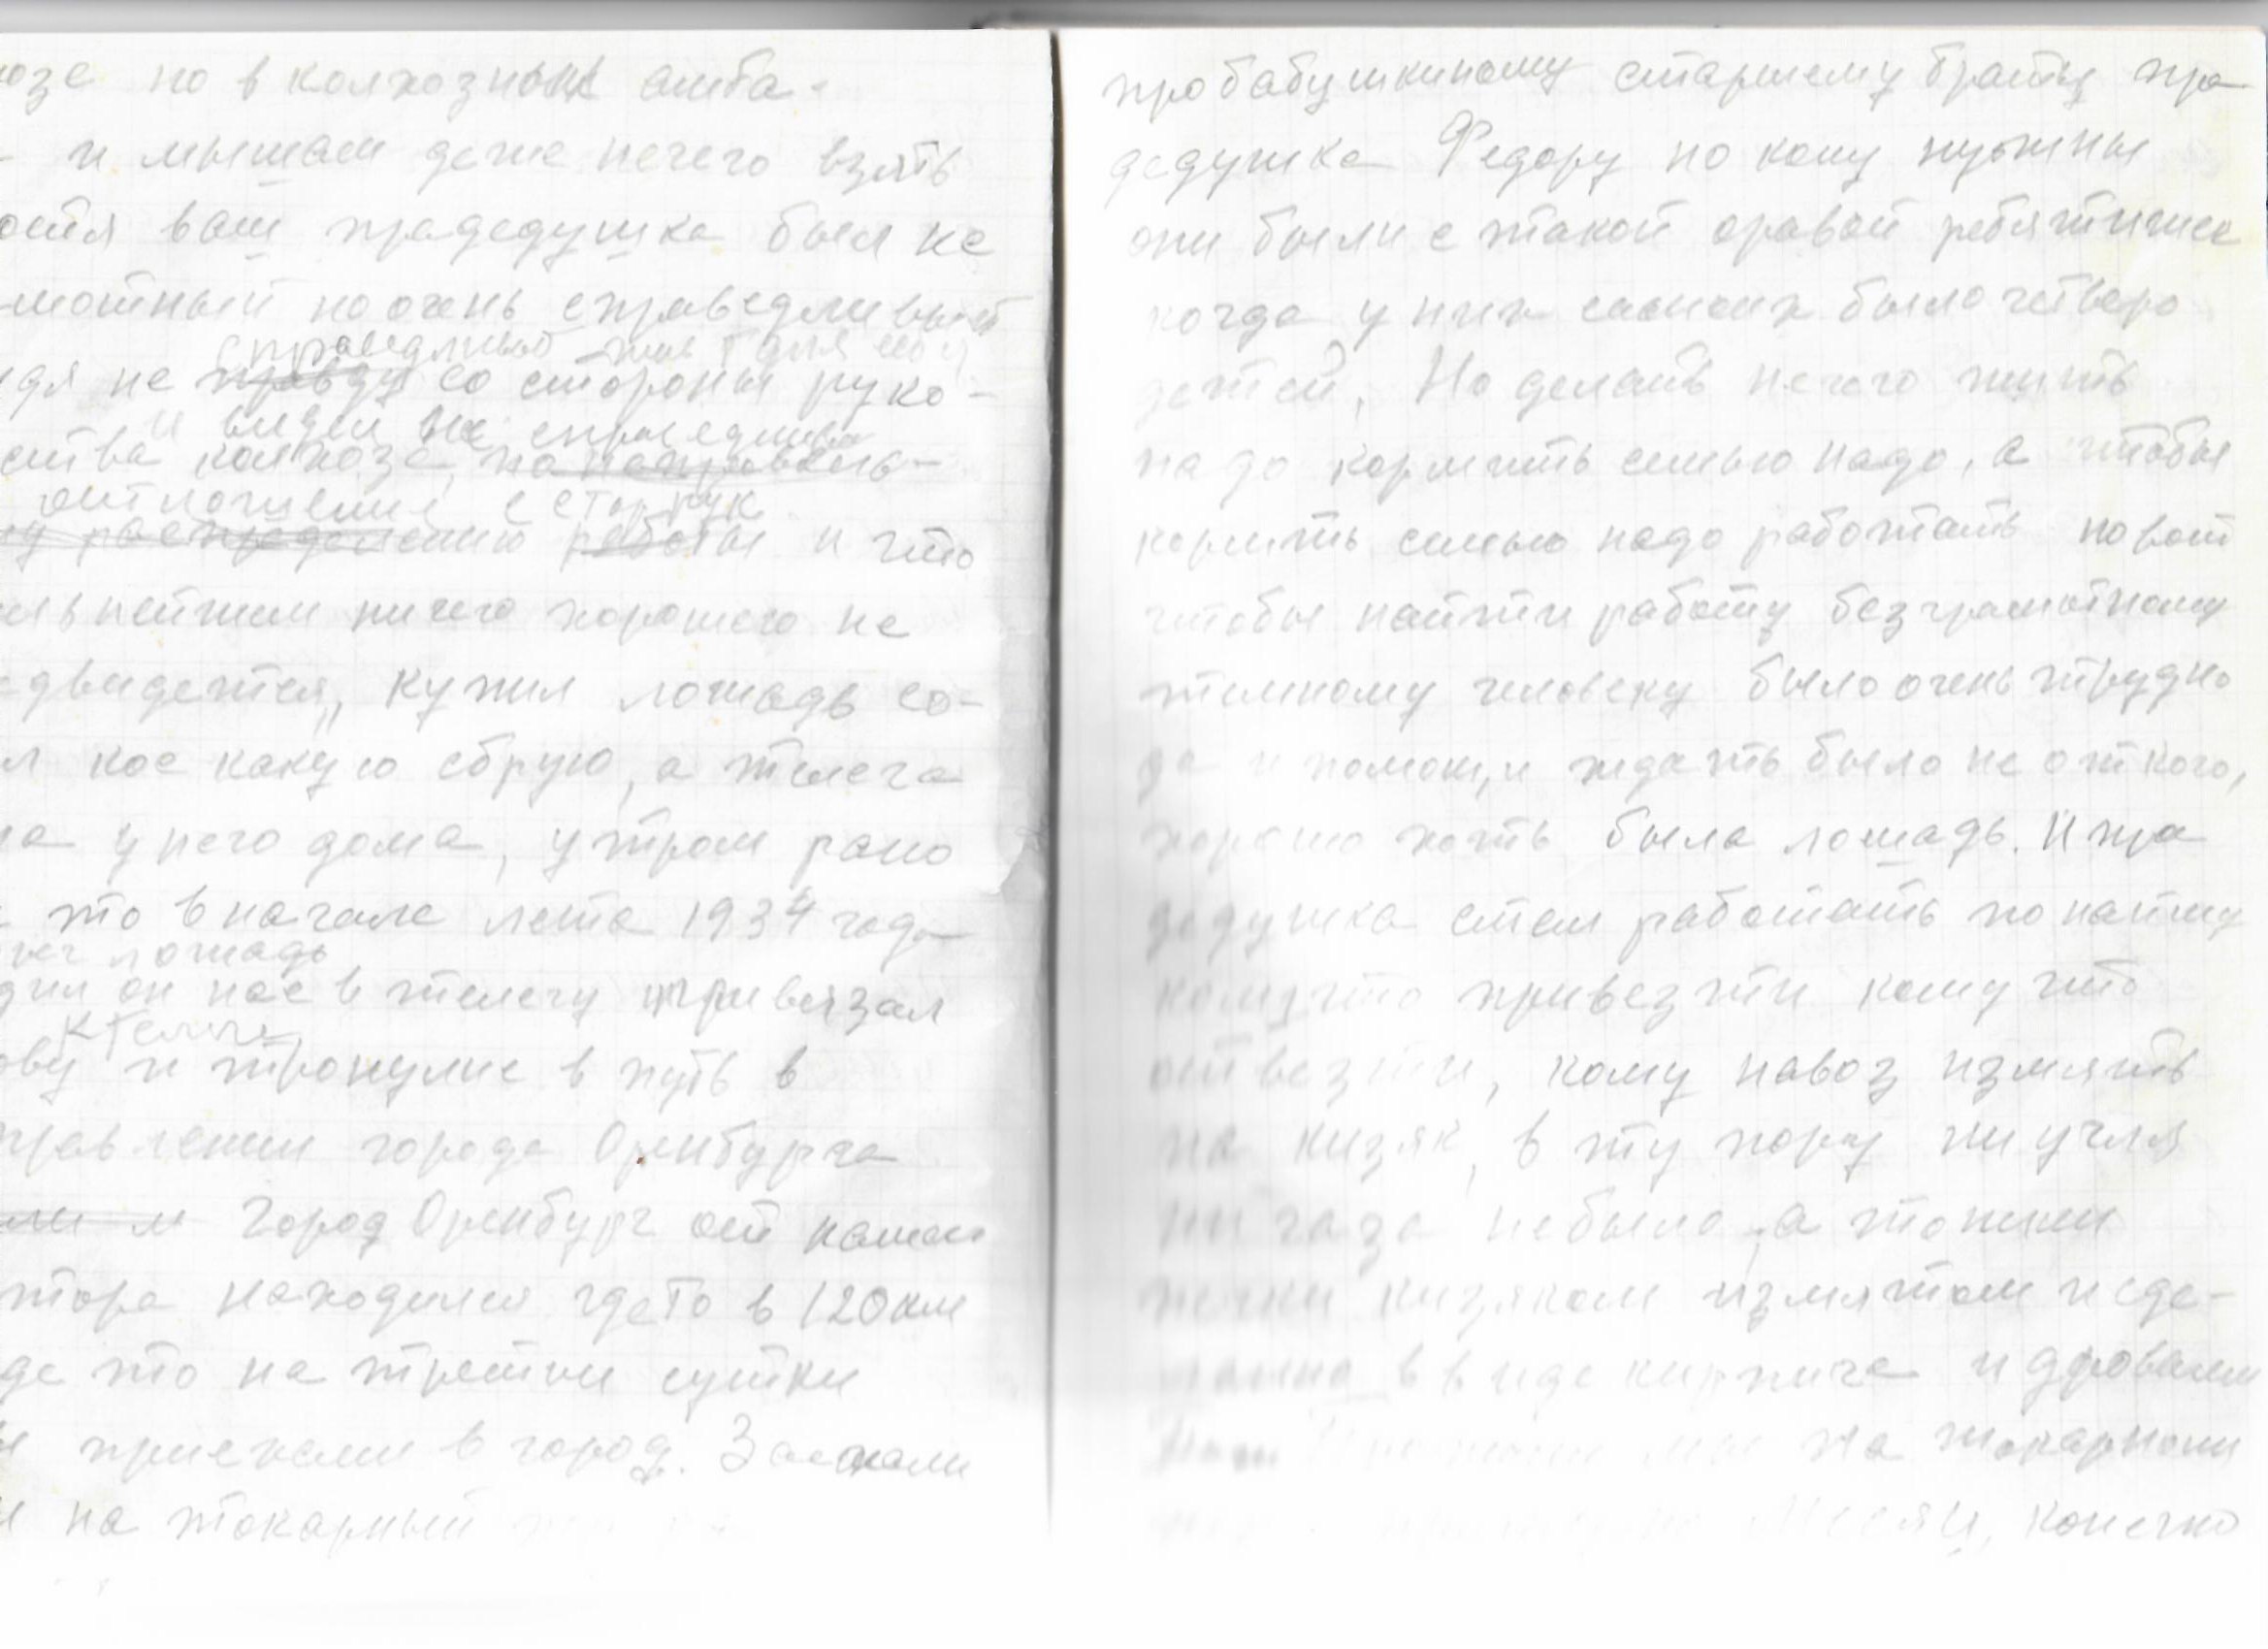 озе но в колхозных амба-
и мышам даже нечего взять
остя ваш прадедушка был не
мотный но очень справедливый
справедливый
идя не правду со стороны руко-
и видел не справедливо
ства колхоза, по неправиль-
отношение с стор. рук.
му распределению работы и что
льнейшем ничего хорошего не
едвидется,, купил лошадь со-
л кое какую сбрую, а телега
ла у него дома, утром рано
это в начале лета 1934 года
лошадь
дил он нас в телегу привязал
к телеге
ову и тронулис в путь в
правлении города Оренбурга
город Оренбург от нашего
тора находился где то в 120 км
где то на третии сутки
приехали в город. Заехали
и на токарный
пробабушкиному старшему брату пра
дедушка Федору но кому нужны
они были с такой оравой ребятишек
когда у них самих было четверо
детей, Но делать нечего жить
надо кормить семью надо, а чтобы
кормить семью надо работать но вот
чтобы найти работу безграмотному
темному человеку было очень трудно
да и помощи ждать было не от кого,
хорошо хоть была лошадь. И пра
дедушка стал работать по найму
кому что привезти кому что
отвезти, кому навоз измять
на кизяк, в ту пору ни угля
ни газа небыло, а топили
печки кизяком измятом и сде-
ланно в виде кирпича и дровами
мы на токарном
месяц, конечно